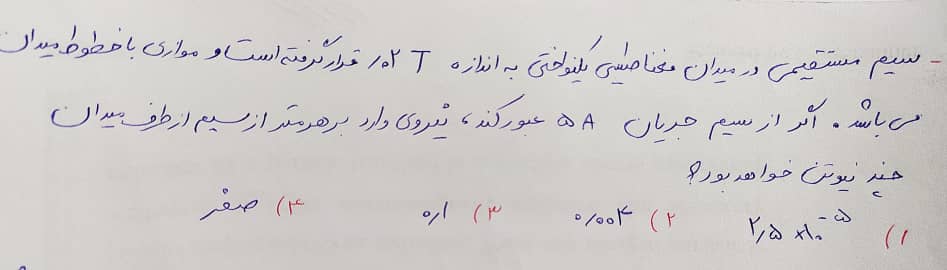 - سیم مستقیمی در میدان مغناطیسی یکنواختی به اندازه ۰٫۰۲ T قرار گرفته است و موازی با خطوط میدان
می باشد. اگر از سیم جریان ۵A عبور کند، نیروی وارد بر هر متر از سیم از طرف میدان
چند نیوتن خواهد بود؟
۱) ۲٫۵ × ۱۰^-۵ ۲) ۰٫۰۰۴ ۳) ۰٫۱ ۴) صفر